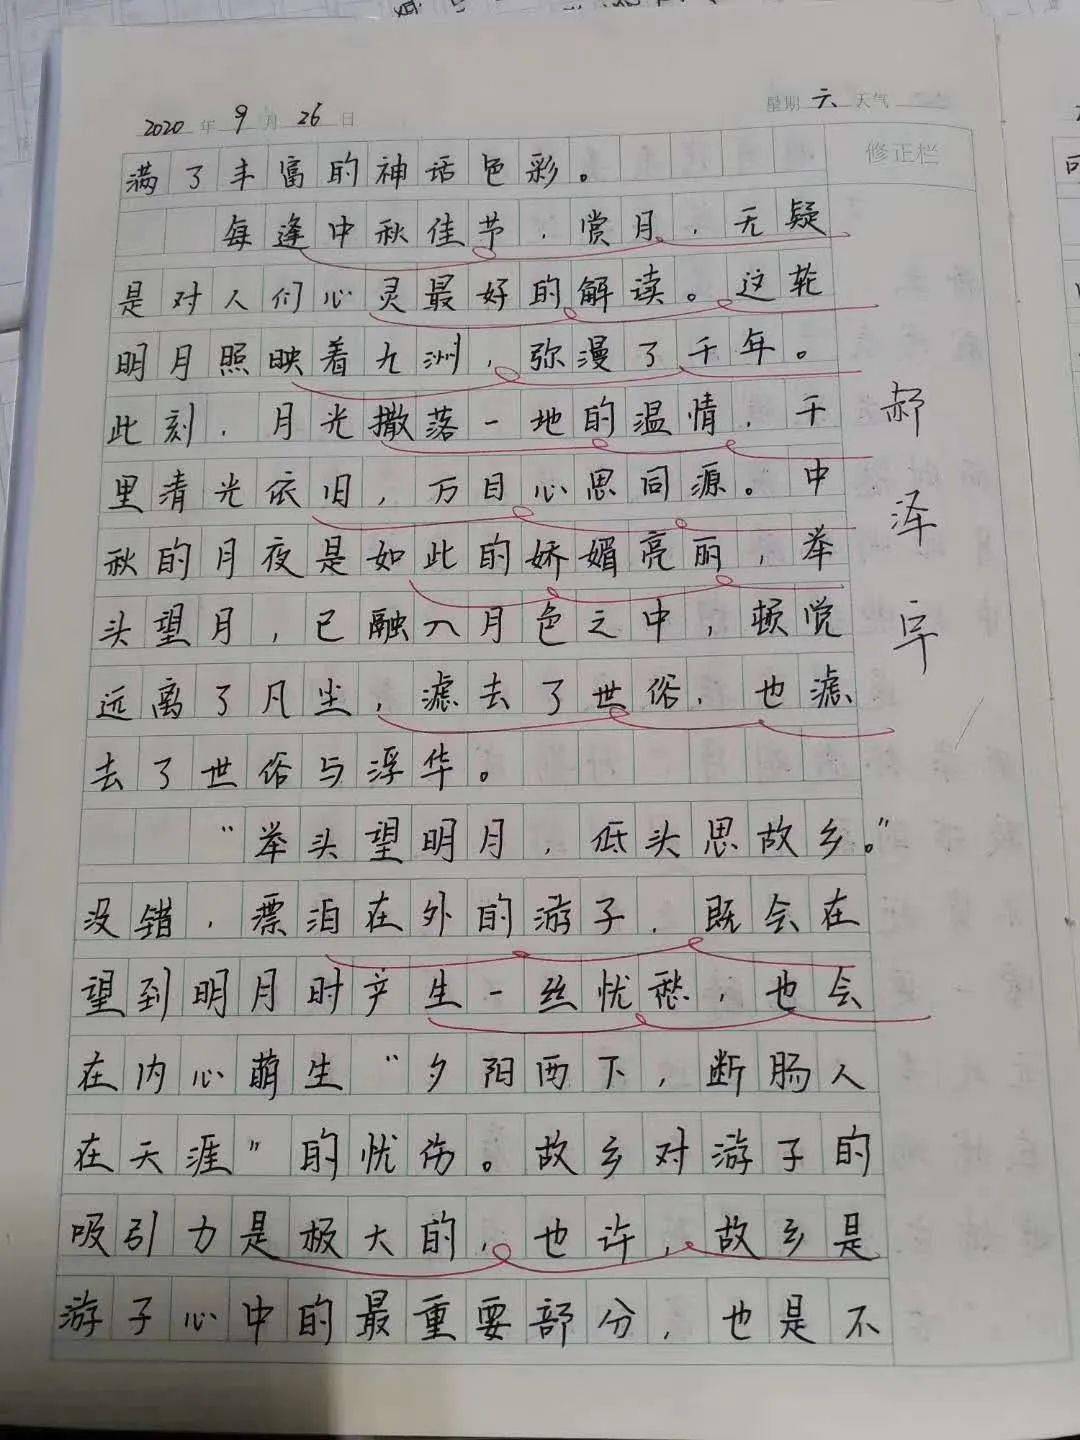 2020年9月26日 星期六 天气
修正栏
满了丰富的神话色彩。
每逢中秋佳节,赏月,无疑
是对人们心灵最好的解读。这轮
明月照映着九洲,弥漫了千年。
此刻,月光撒落一地的温情,千
里清光依旧,万目心思同源。中
秋的月夜是如此的娇媚亮丽,举
头望月,已融入月色之中,顿觉
远离了凡尘,滤去了世俗,也滤
去了世俗与浮华。
“举头望明月,低头思故乡。”
没错,漂泊在外的游子,既会在
望到明月时产生一丝忧愁,也会
在内心萌生“夕阳西下,断肠人
在天涯”的忧伤。故乡对游子的
吸引力是极大的,也许,故乡是
游子心中的最重要部分,也是不
郝泽宇